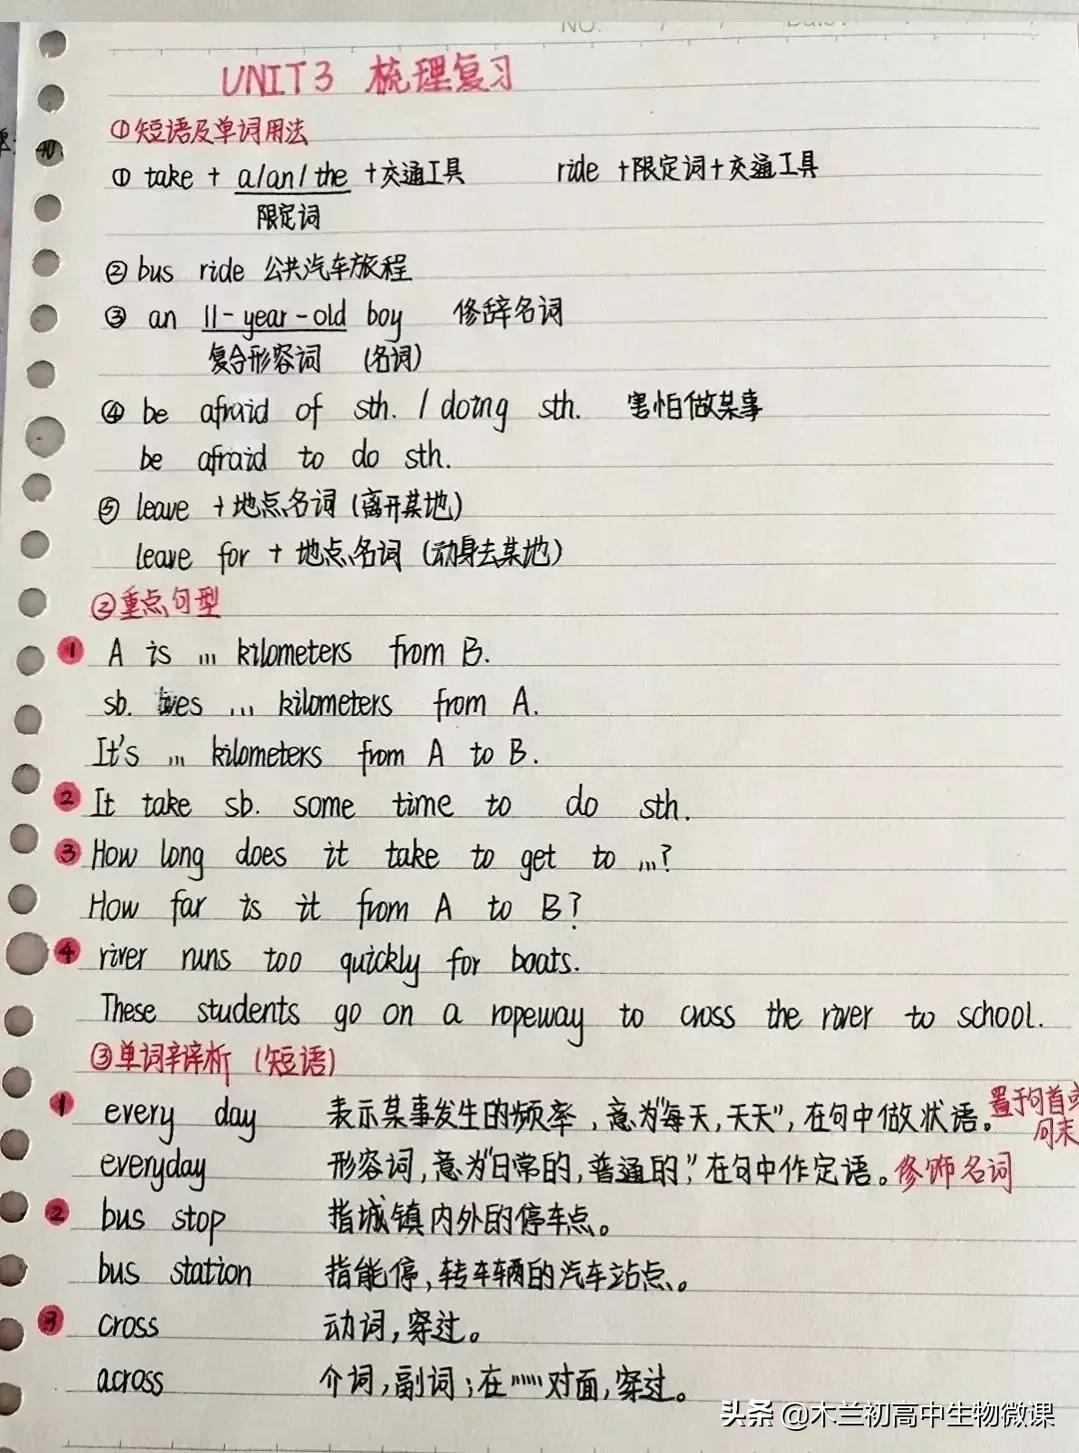 NO.
Date.
UNIT3 梳理复习
①短语及单词用法
① take + a/an/the +交通工具 ride +限定词+交通工具
限定词
② bus ride 公共汽车旅程
③ an 11-year-old boy 修辞名词
复合形容词 (名词)
④ be afraid of sth. / doing sth. 害怕做某事
be afraid to do sth.
⑤ leave +地点名词(离开某地)
leave for + 地点名词(动身去某地)
②重点句型
1 A is ... kilometers from B.
sb. lives ... kilometers from A.
It's ... kilometers from A to B.
2 It take sb. some time to do sth.
3 How long does it take to get to ...?
How far is it from A to B?
4 river runs too quickly for boats.
These students go on a ropeway to cross the river to school.
③单词辨析(短语)
1 every day 表示某事发生的频率,意为"每天,天天",在句中做状语。置于句首或
句末
everyday 形容词,意为"日常的,普通的",在句中作定语。修饰名词
2 bus stop 指城镇内外的停车点。
bus station 指能停,转车辆的汽车站点。
3 cross 动词,穿过。
across 介词,副词;在……对面,穿过。
头条 @木兰初高中生物微课